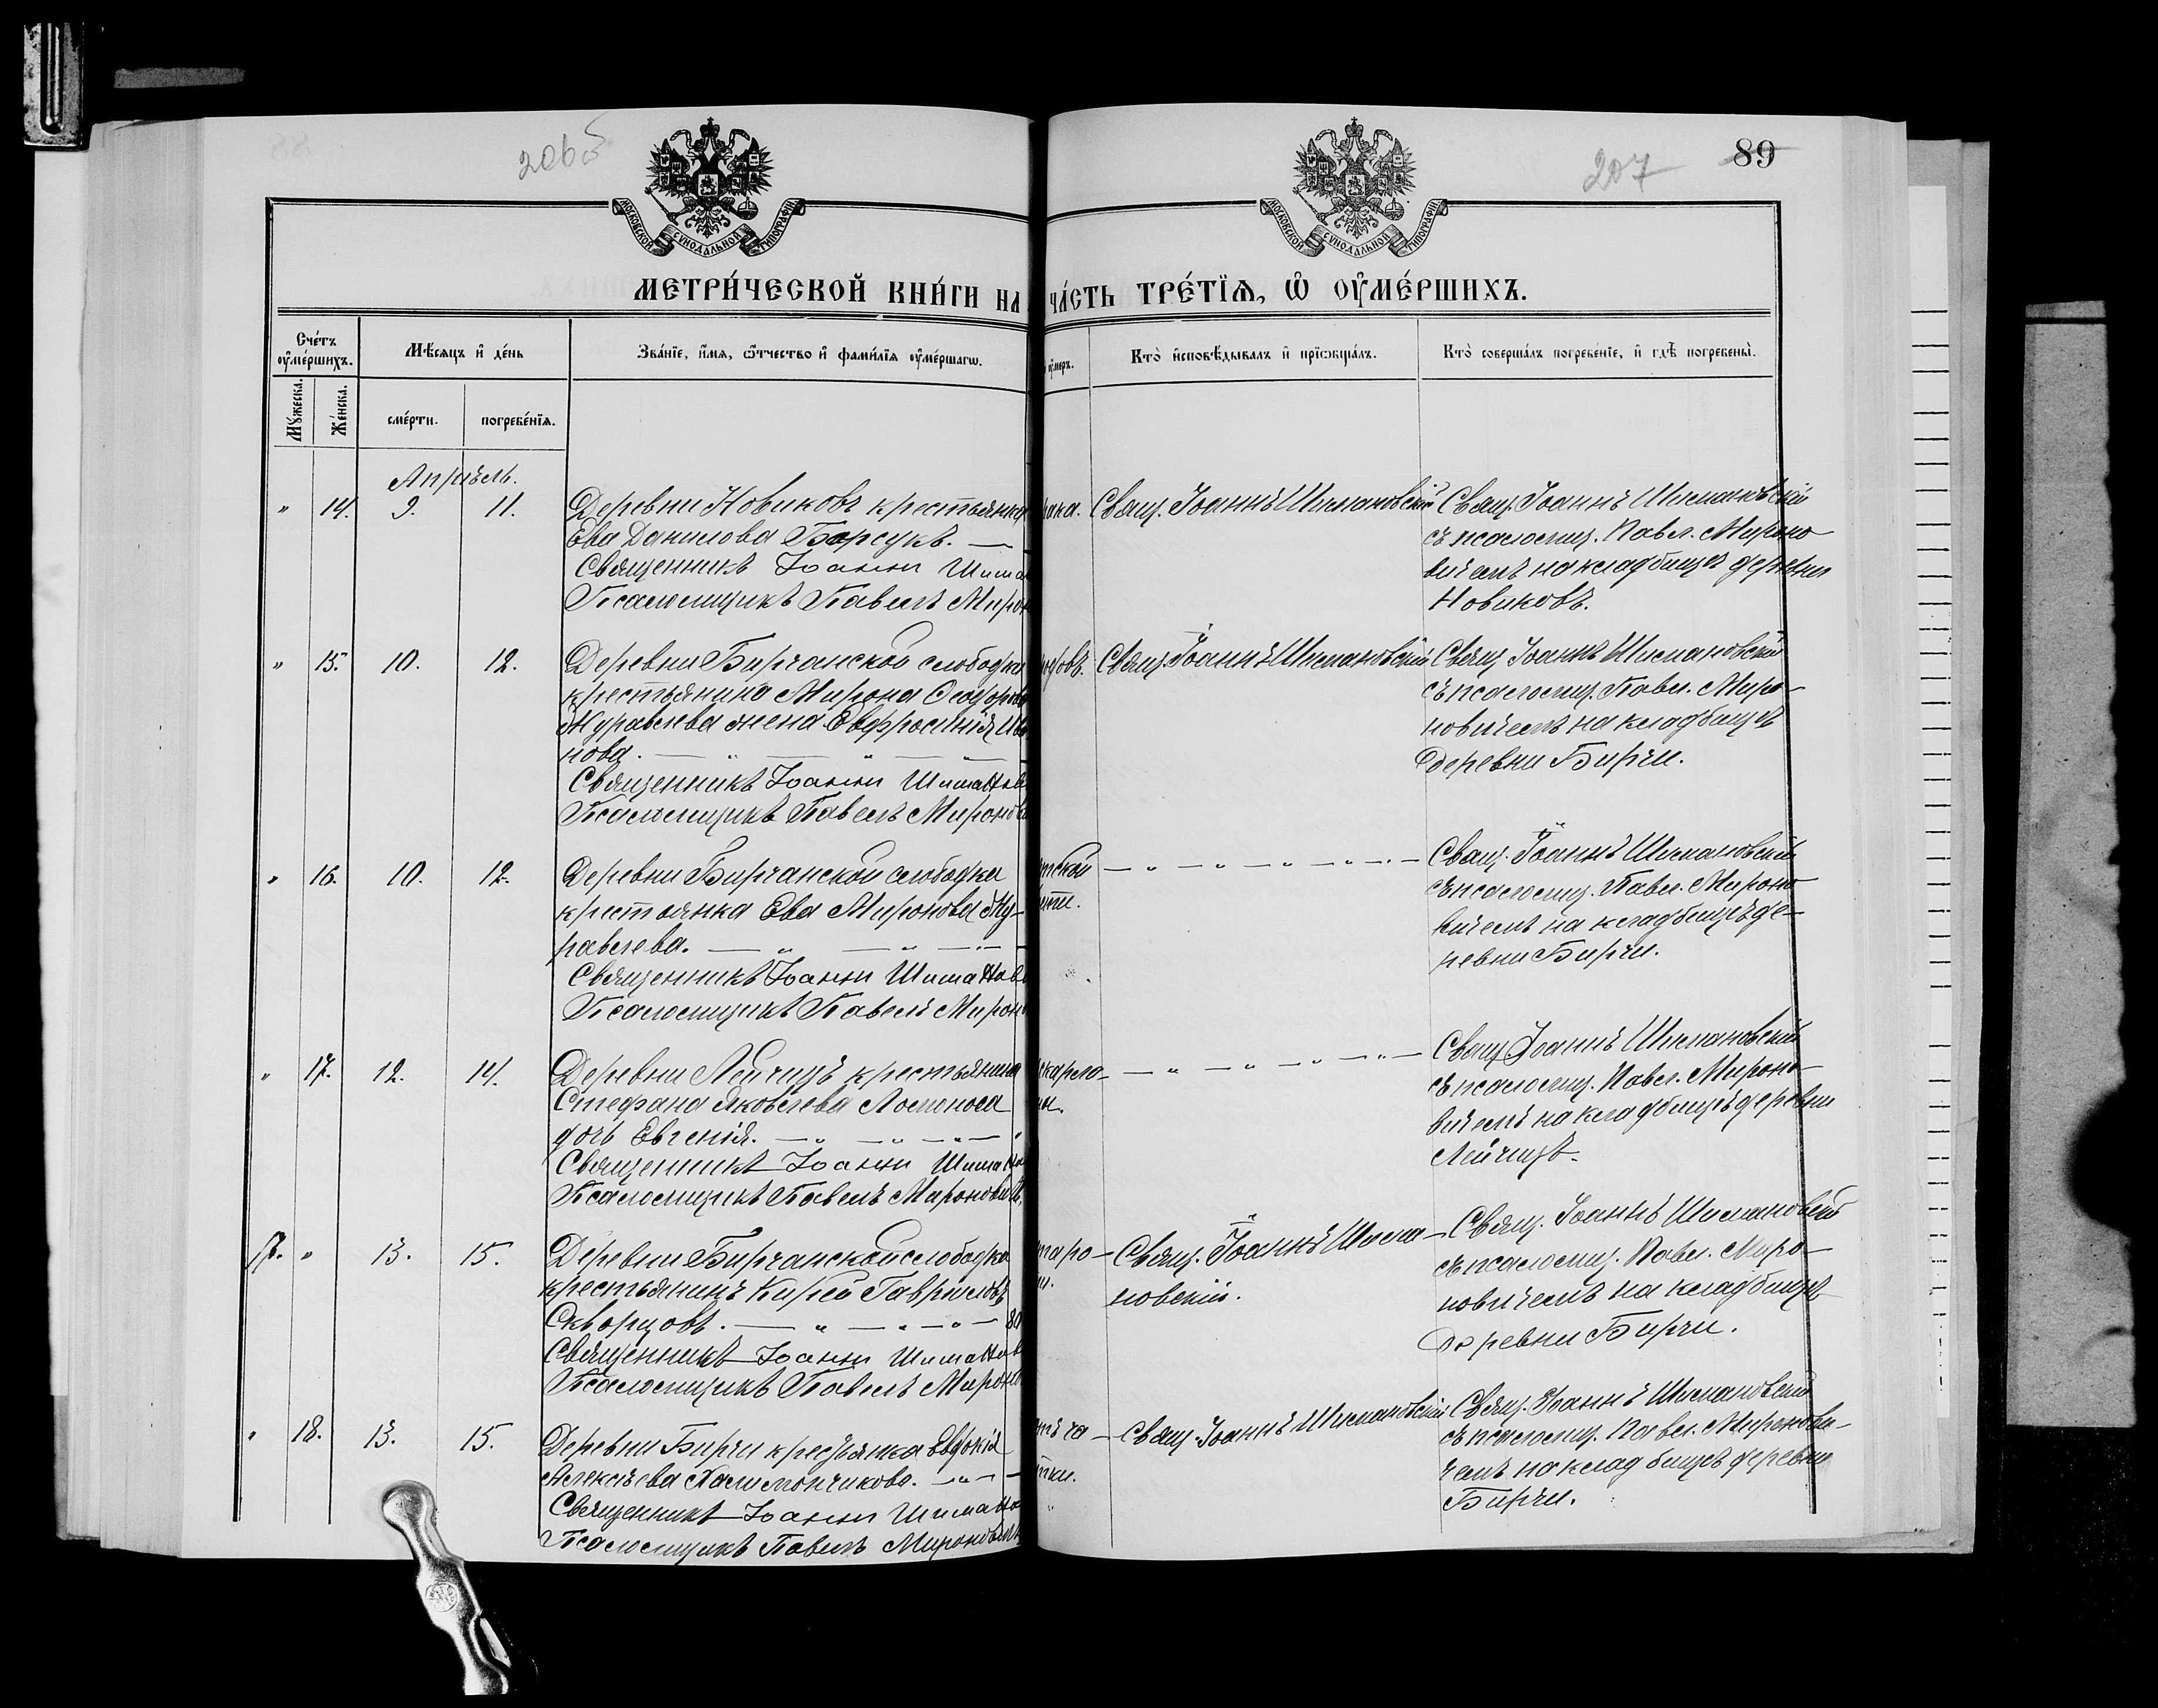 206 об
207
89
МОСКОВСКОЙ СѴНОДАЛЬНОЙ ТИПОГРАФІИ
МОСКОВСКОЙ СѴНОДАЛЬНОЙ ТИПОГРАФІИ
МЕТРИ́ЧЕСКОЙ КНИ́ГИ НА
ЧА́СТЬ ТРЕ́ТЇѦ, Ѡ҆ ОУ҆МЕ́РШИХЪ.
Сче́тъ оу҆ме́ршихъ.
Мѣ́сяцъ и҆ де́нь
Зва́нїе, и҆́мя, ѻ҆́тчество и҆ фами́лїя оу҆ме́ршагѡ.
оу҆́меръ.
Кто̀ и҆сповѣ́дывалъ и҆ прїѡбща́лъ.
Кто̀ соверша́лъ погребе́нїе, и҆ гдѣ̀ погребены̀.
Мꙋ́жеска.
Же́нска.
сме́рти.
погребе́нїя.
Апрѣль.
" 14. 9. 11.
Деревни Новиковъ крестьянка
Ева Данилова Борсукъ. —
Священникъ Іоаннъ Шима
Псаломщикъ Павелъ Мирон
Свящ. Іоаннъ Шимановскій
Свящ. Іоаннъ Шимановскій
съ псаломщ. Павл. Мироно-
вичемъ на кладбищѣ деревни
Новиковъ.
" 15. 10. 12.
Деревни Бирчанской слободки
крестьянина Мирона Ѳеодорова
Журавлева жена Евфросинія Ива
нова. — " — " —
Священникъ Іоаннъ Шиманов
Псаломщикъ Павелъ Миронов
Свящ. Іоаннъ Шимановскій
Свящ. Іоаннъ Шимановскій
съ псаломщ. Павл. Миро-
новичемъ на кладбищѣ
деревни Бирчи.
" 16. 10. 12.
Деревни Бирчанской слободка
крестьянка Ева Миронова Жу-
равлева. — " — " — " —
Священникъ Іоаннъ Шиманов
Псаломщикъ Павелъ Мирон
тской
— " — " — " — " —
Свящ. Іоаннъ Шимановскій
съ псаломщ. Павл. Мироно-
вичемъ на кладбищѣ де-
ревни Бирчи.
" 17. 12. 14.
Деревни Лейчицъ крестьянина
Стефана Яковлева Ломоноса
дочь Евгенія. — " — " — " —
Священникъ Іоаннъ Шимано
Псаломщикъ Павелъ Миронович
скарла-
— " — " — " — " —
Свящ. Іоаннъ Шимановскій
съ псаломщ. Павл. Мироно-
вичемъ на кладбищѣ деревни
Лейчицъ.
17. " 13. 15.
Деревни Бирчанской слободка
крестьянинъ Кирей Гавриловъ
Скворцовъ. — " — " — " — 80
Священникъ Іоаннъ Шиманов
Псаломщикъ Павелъ Мироно
таро-
Свящ. Іоаннъ Шима-
новскій.
Свящ. Іоаннъ Шимановскій
съ псаломщ. Павл. Миро-
новичемъ на кладбищѣ
деревни Бирчи.
" 18. 13. 15.
Деревни Бирчи крестьянка Евдокія
Алексѣева Халимончикова. — " —
Священникъ Іоаннъ Шимано
Псаломщикъ Павелъ Миронович
тъ ча-
Свящ. Іоаннъ Шимановскій
Свящ. Іоаннъ Шимановскій
съ псаломщ. Павел. Миронови-
чемъ на кладбищѣ деревни
Бирчи.